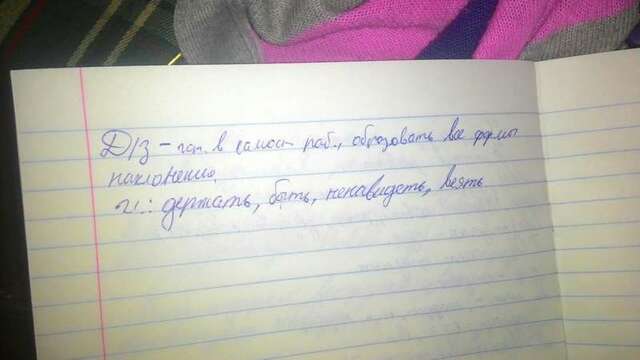 Д/З - гот. в самост. раб., образовать все формы
наклонения
гл.: держать, быть, ненавидеть, веять